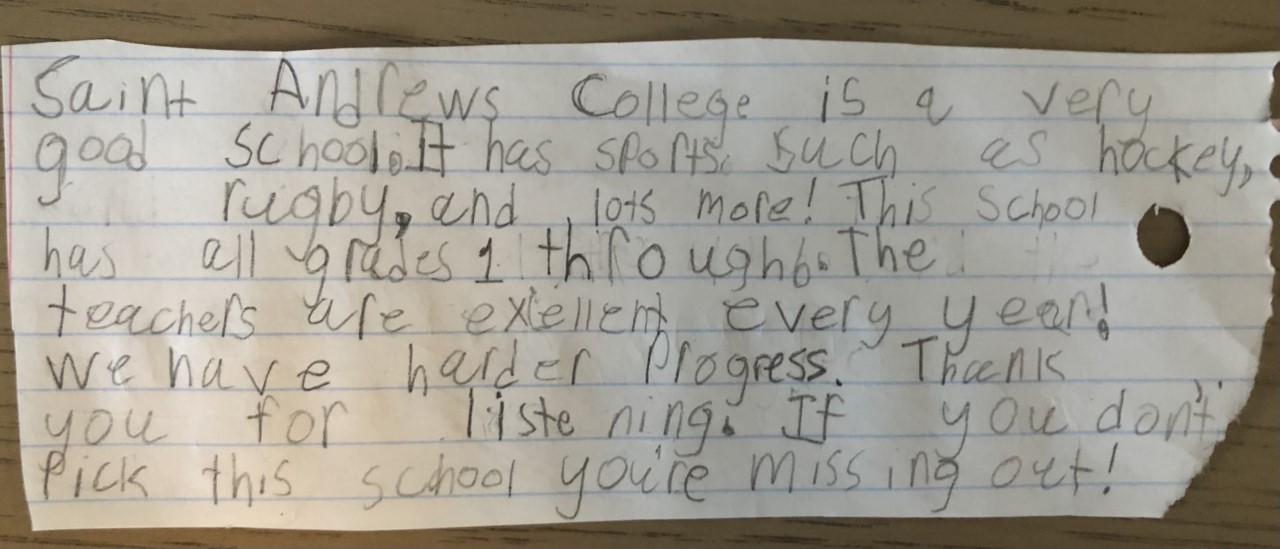 Saint Andrews College is a very
good school. It has sports. such as hockey,
rugby, and lots more! This school
has all grades 1 through 6. The
teachers are exiellent every year!
We have harder Progress. Thank
you for listening. If you don't
Pick this school you're missing out!